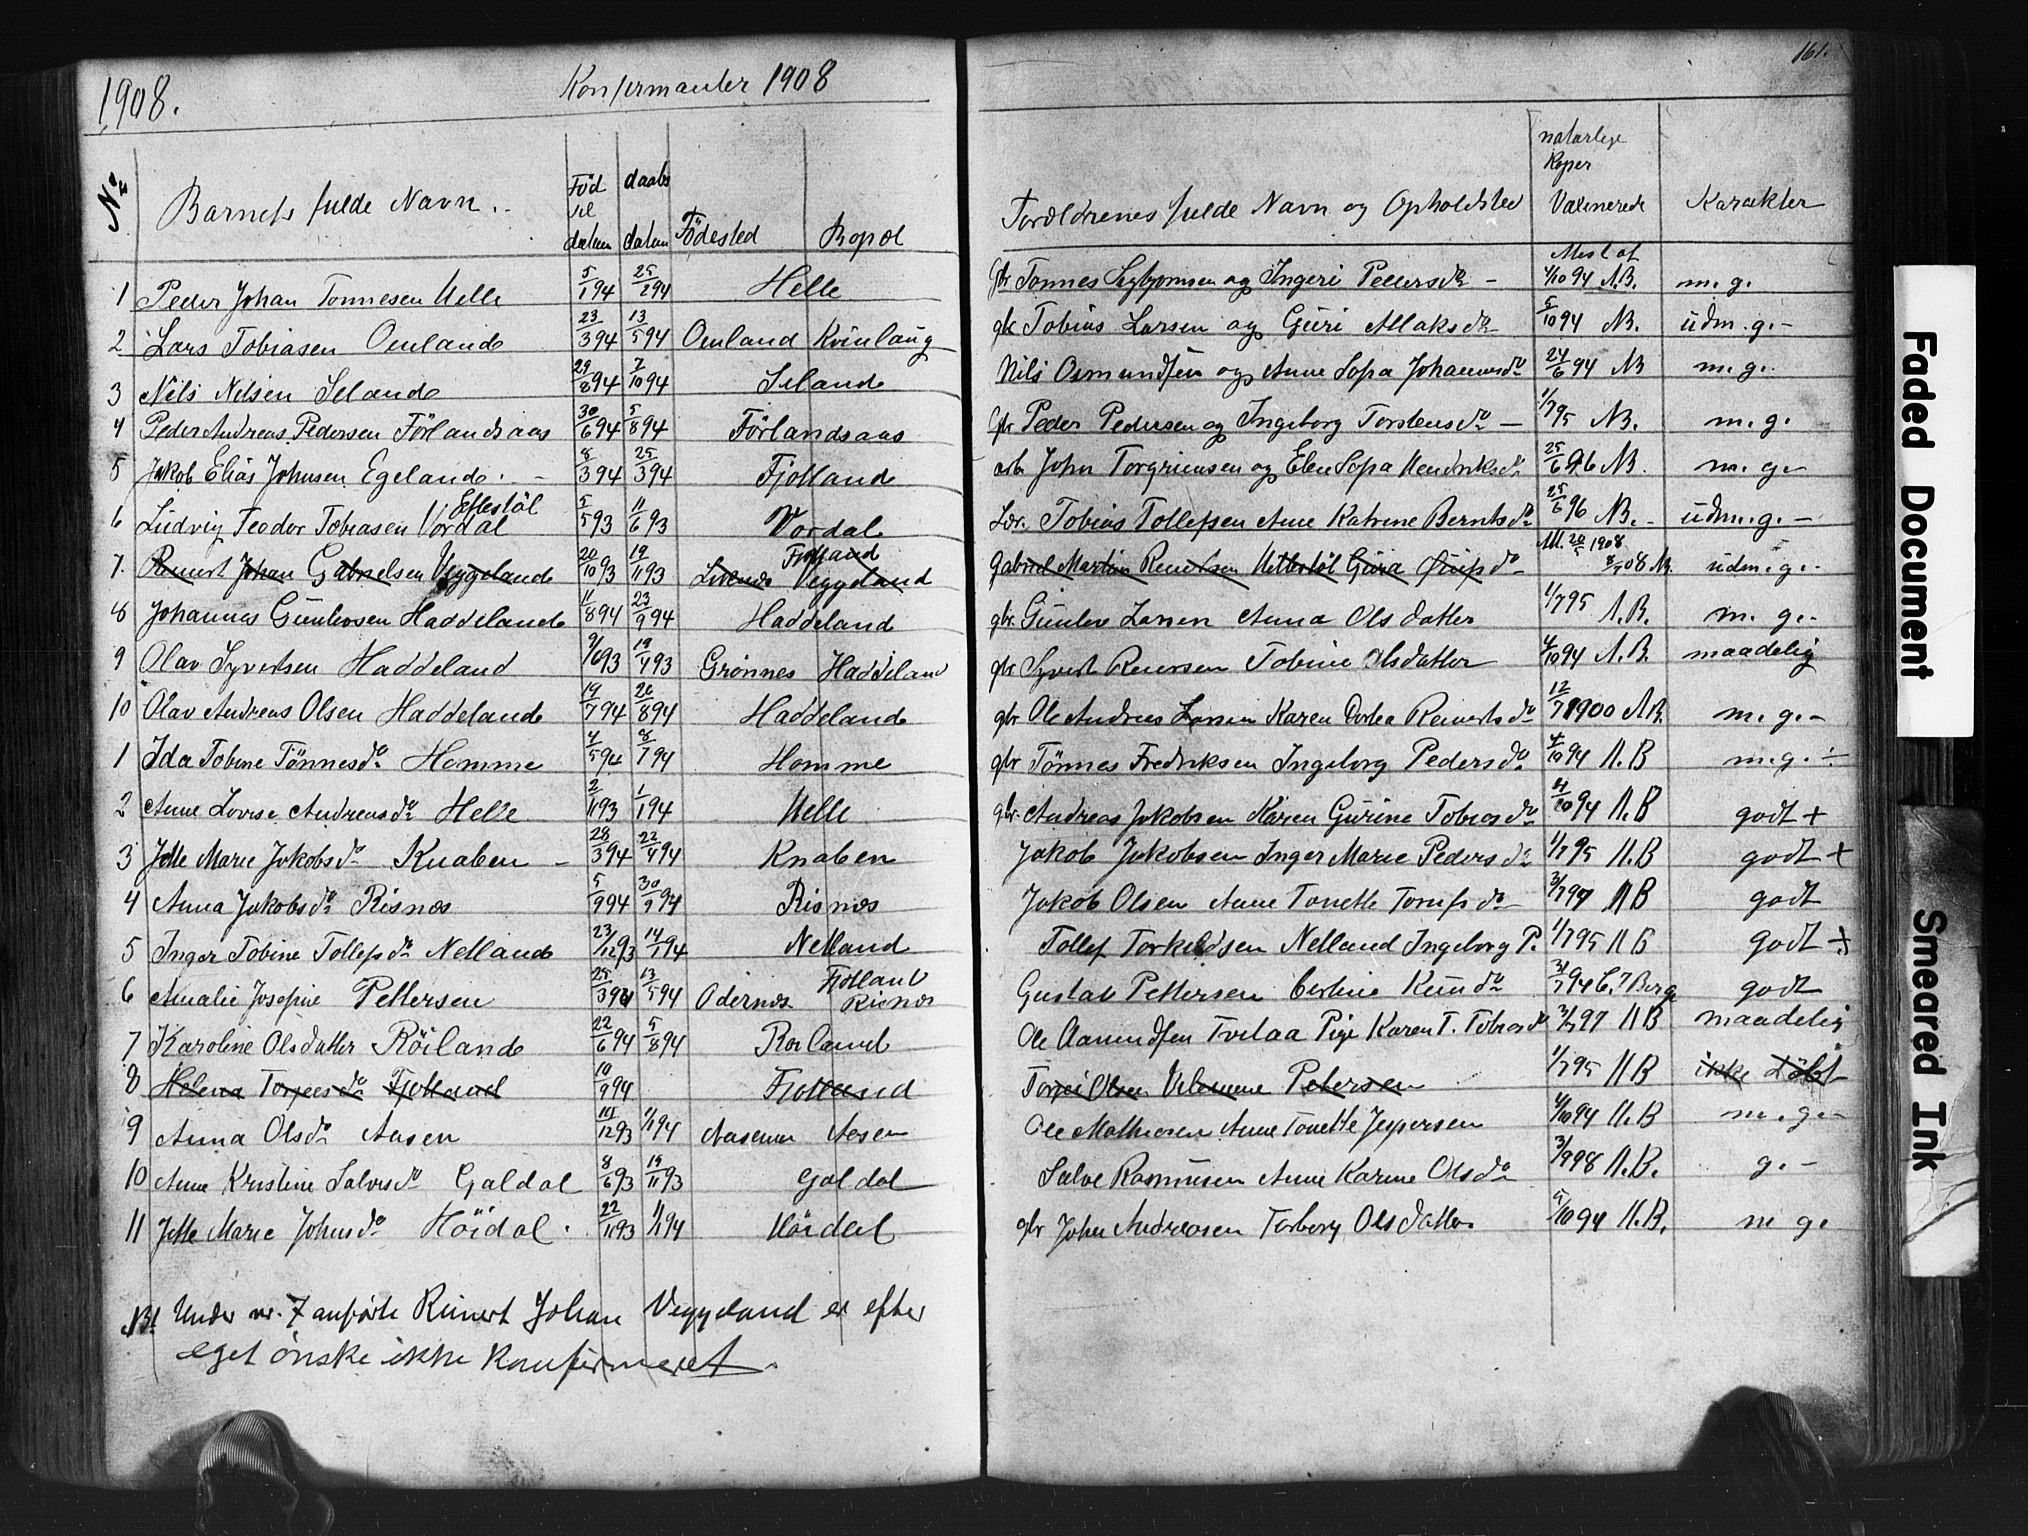 161.
1908. Konfirmanter 1908
No Barnets fulde Navn. Föd sel datum daabs datum Födested Bopæl Forældrenes fulde Navn og Opholdsted naturlige Koper Vaxinerede Karakter
Mesl af
1 Peder Johan Tønnesen Helle 5/1 94 25/2 94 Helle Gbr Tønnes og Ingeri Pedersdr - 4/10 94 N.B. m. g.
2 Lars Tobiasen Omland 23/3 94 13/5 94 Omland Kvinlaug gbr Tobias Larsen og Guri Aslaksdr 5/10 94 NB. udm. g. -
3 Nils Nilsen Seland 29/8 94 7/10 94 Seland Nils Osmundsen og Anne Sofa Johannesdr 24/6 94 NB m. g.
4 Peder Andreas Pedersen Förlandsaas 30/6 94 5/8 94 Förlandsaas gbr Peder Pedersen og Ingeborg Torstensdr - 1/7 95 NB. m. g.
5 Jakob Elias Johnsen Egeland. - 8/3 94 25/3 94 Fjotland arb. John Torgrimsen og Elen Sofa Hendriksdr 25/6 96 NB. m. g -
Eftestöl
6 Ludvig Teodor Tobiasen Vordal 5/5 93 11/6 93 Vordal Lær. Tobias Tollefsen Anne Katrine Berntsdr 25/6 96 NB. - udm. g. -
Fjotland M. 20/5 1908
7. Reinert Johan Gabrielsen Veggeland 20/10 93 19/11 93 Veggeland Gabriel Martin Reinertsen 08 N. udm. g. -
8 Johannes Gunlevsen Haddeland 11/8 94 23/9 94 Haddeland gbr. Gunlev Larsen Anna Olsdatter 1/7 95 N.B. m. g. -
9 Olav Syvertsen Haddeland 9/6 93 19/11 93 Grönnes Haddeland gbr Syvert Reiersen Tobine Olsdatter 4/10 94 N.B. maadelig
10 Olav Andreas Olsen Haddeland 19/7 94 26/8 94 Haddeland gbr Ole Andreas Larsen Karen Dortea Reinertsdr 12/7 1900 NB. m. g. -
1 Ida Tobine Tönnesdr Homme 4/5 94 8/7 94 Homme gbr Tönnes Fredriksen Ingeborg Pedersdr 4/10 94 N.B m. g. ÷
2 Anne Lovise Andreasdr Helle 2/11 93 1/1 94 Helle gbr. Andreas Jakobsen Karen Gurine Tobiasdr 4/10 94 N.B godt +
3 Jette Marie Jakobsdr Knaben - 28/3 94 22/4 94 Knaben Jakob Jakobsen Inger Marie Pedersdr 1/7 95 N.B godt +
4 Anna Jakobsdr Risnes 5/9 94 30/9 94 Risnes Jakob Olsen Anne Tonette 3/7 97 NB godt
5 Inger Tobine Tollefsdr Netland 23/12 93 14/1 94 Netland Tollef Torkildsen Netland Ingeborg P. 1/7 95 NB godt +
Fjotland
6 Amalie Josefine Pettersen 25/3 94 13/5 94 Odernes Risnes Gustav Pettersen Knudr 31/7 94 C. T Berge godt
7 Karoline Olsdatter Röiland 22/6 94 5/8 94 Roiland Ole Aanendsen Tvelaa Pige Karen T. Tobiasdr 3/7 97 NB maadelig
8 Helena Torjeesdr Fjotland 10/9 94 Fjotland Torjei Olsen Petersen 1/7 95 N B ikke döbt
9 Anna Olsdr Aasen 10/12 93 1/1 94 Aasen Ole Mathiasen Anne Tonette Jespersen 4/10 94 N.B m. g. -
10 Anne Kristine Salvesdr Galdal 8/6 93 19/11 93 Galdal Salve Rasmusen Anne Karine Olsdr 3/9 98 N.B. g. -
11 Jette Marie Johnsdr Höidal. 22/11 93 1/1 94 Höidal gbr John Andreasen Torborg Olsdatter 5/10 94 N.B. m g.
NB! Under nr. 7 anförte Reinert Johan Veggeland er efter
eget önske ikke konfirmeret.
Faded Document
Smeared Ink